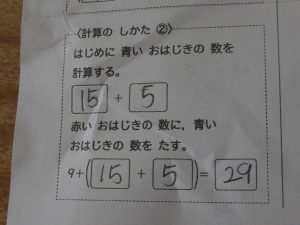 〈計算の しかた ②〉
はじめに 青い おはじきの 数を
計算する。
15 + 5
赤い おはじきの 数に，青い
おはじきの 数を たす。
9+(15 + 5)=29